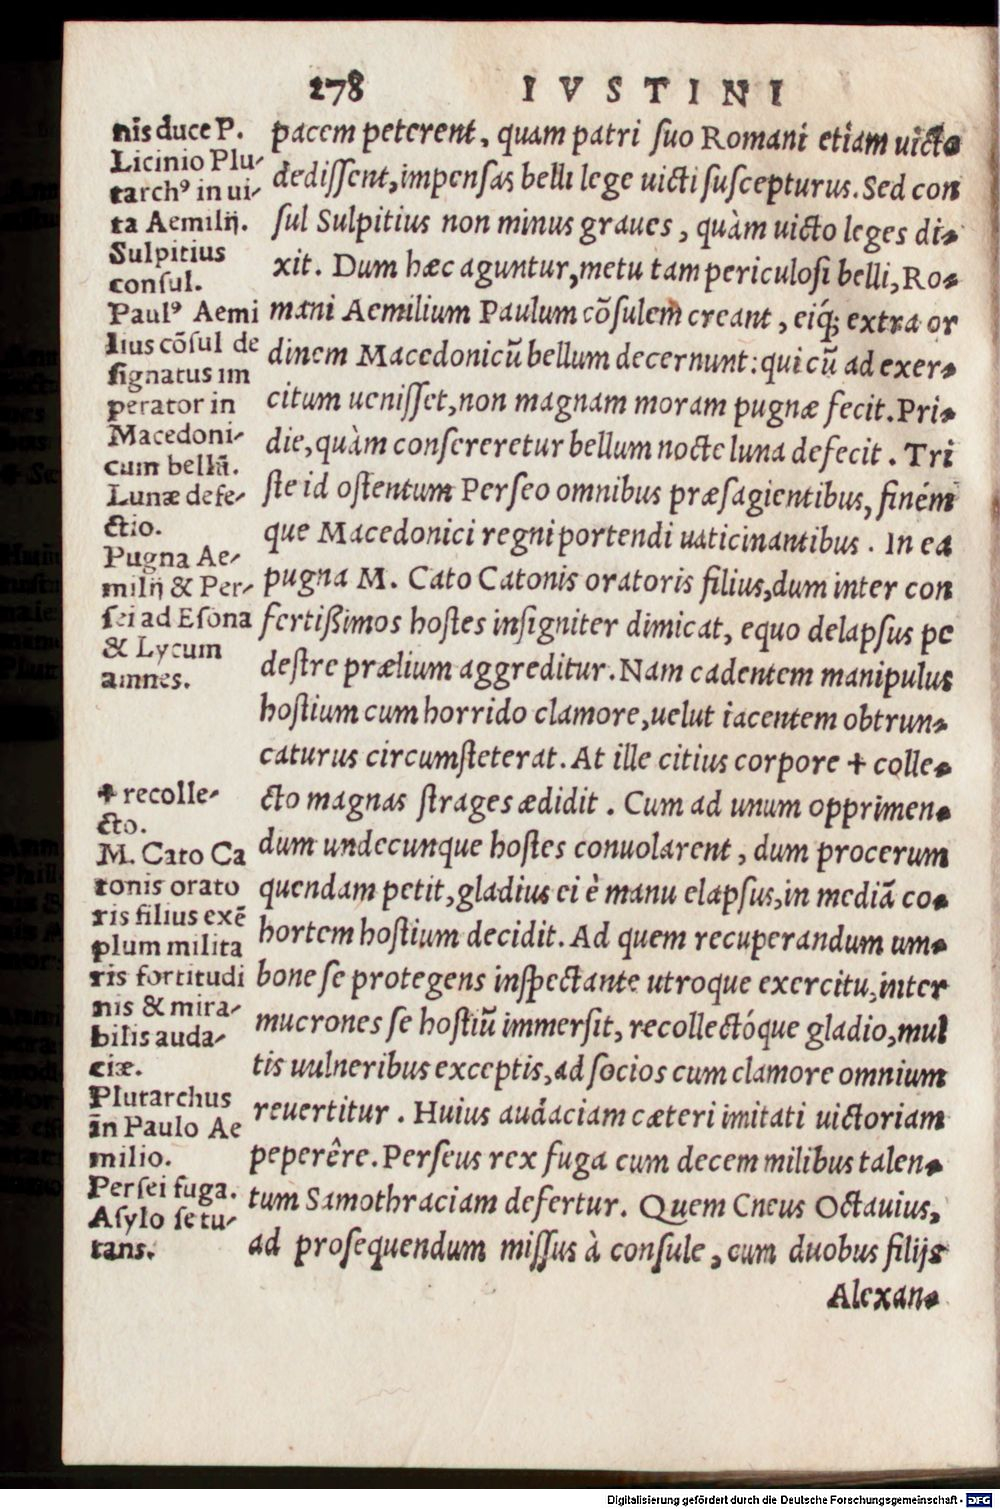 278
IVSTINI
nis duce P.
Licinio Plu-
tarchꝰ in ui-
ta Aemilij.
Sulpitius
consul.
Paulꝰ Aemi
lius cōsul de
signatus im
perator in
Macedoni-
cum bellū.
Lunæ defe-
ctio.
Pugna Ae-
milij & Per-
sei ad Esona
& Lycum
amnes.
✝ recolle-
cto.
M. Cato Ca
tonis orato
ris filius exē
plum milita
ris fortitudi
nis & mira-
bilis auda-
ciæ.
Plutarchus
in Paulo Ae
milio.
Persei fuga.
Asylo se tu-
tans.
pacem peterent, quam patri suo Romani etiam uicto
dedissent, impensas belli lege uicti suscepturus. Sed con
sul Sulpitius non minus graues, quàm uicto leges di-
xit. Dum hæc aguntur, metu tam periculosi belli, Ro-
mani Aemilium Paulum cōsulem creant, eiq́; extra or
dinem Macedonicū bellum decernunt: qui cū ad exer-
citum uenisset, non magnam moram pugnæ fecit. Pri-
die, quàm consereretur bellum nocte luna defecit. Tri
ste id ostentum Perseo omnibus præsagientibus, finém
que Macedonici regni portendi uaticinantibus. In ea
pugna M. Cato Catonis oratoris filius, dum inter con
fertißimos hostes insigniter dimicat, equo delapsus pe
destre prælium aggreditur. Nam cadentem manipulus
hostium cum horrido clamore, uelut iacentem obtrun-
caturus circumsteterat. At ille citius corpore ✝ colle-
cto magnas strages ædidit. Cum ad unum opprimen-
dum undecunque hostes conuolarent, dum procerum
quendam petit, gladius ei è manu elapsus, in mediā co-
hortem hostium decidit. Ad quem recuperandum um-
bone se protegens inspectante utroque exercitu, inter
mucrones se hostiū immersit, recollectóque gladio, mul
tis uulneribus exceptis, ad socios cum clamore omnium
reuertitur. Huius audaciam cæteri imitati uictoriam
peperêre. Perseus rex fuga cum decem milibus talen-
tum Samothraciam defertur. Quem Cneus Octauius,
ad prosequendum missus à consule, cum duobus filijs
Alexan-
Digitalisierung gefördert durch die Deutsche Forschungsgemeinschaft - DFG